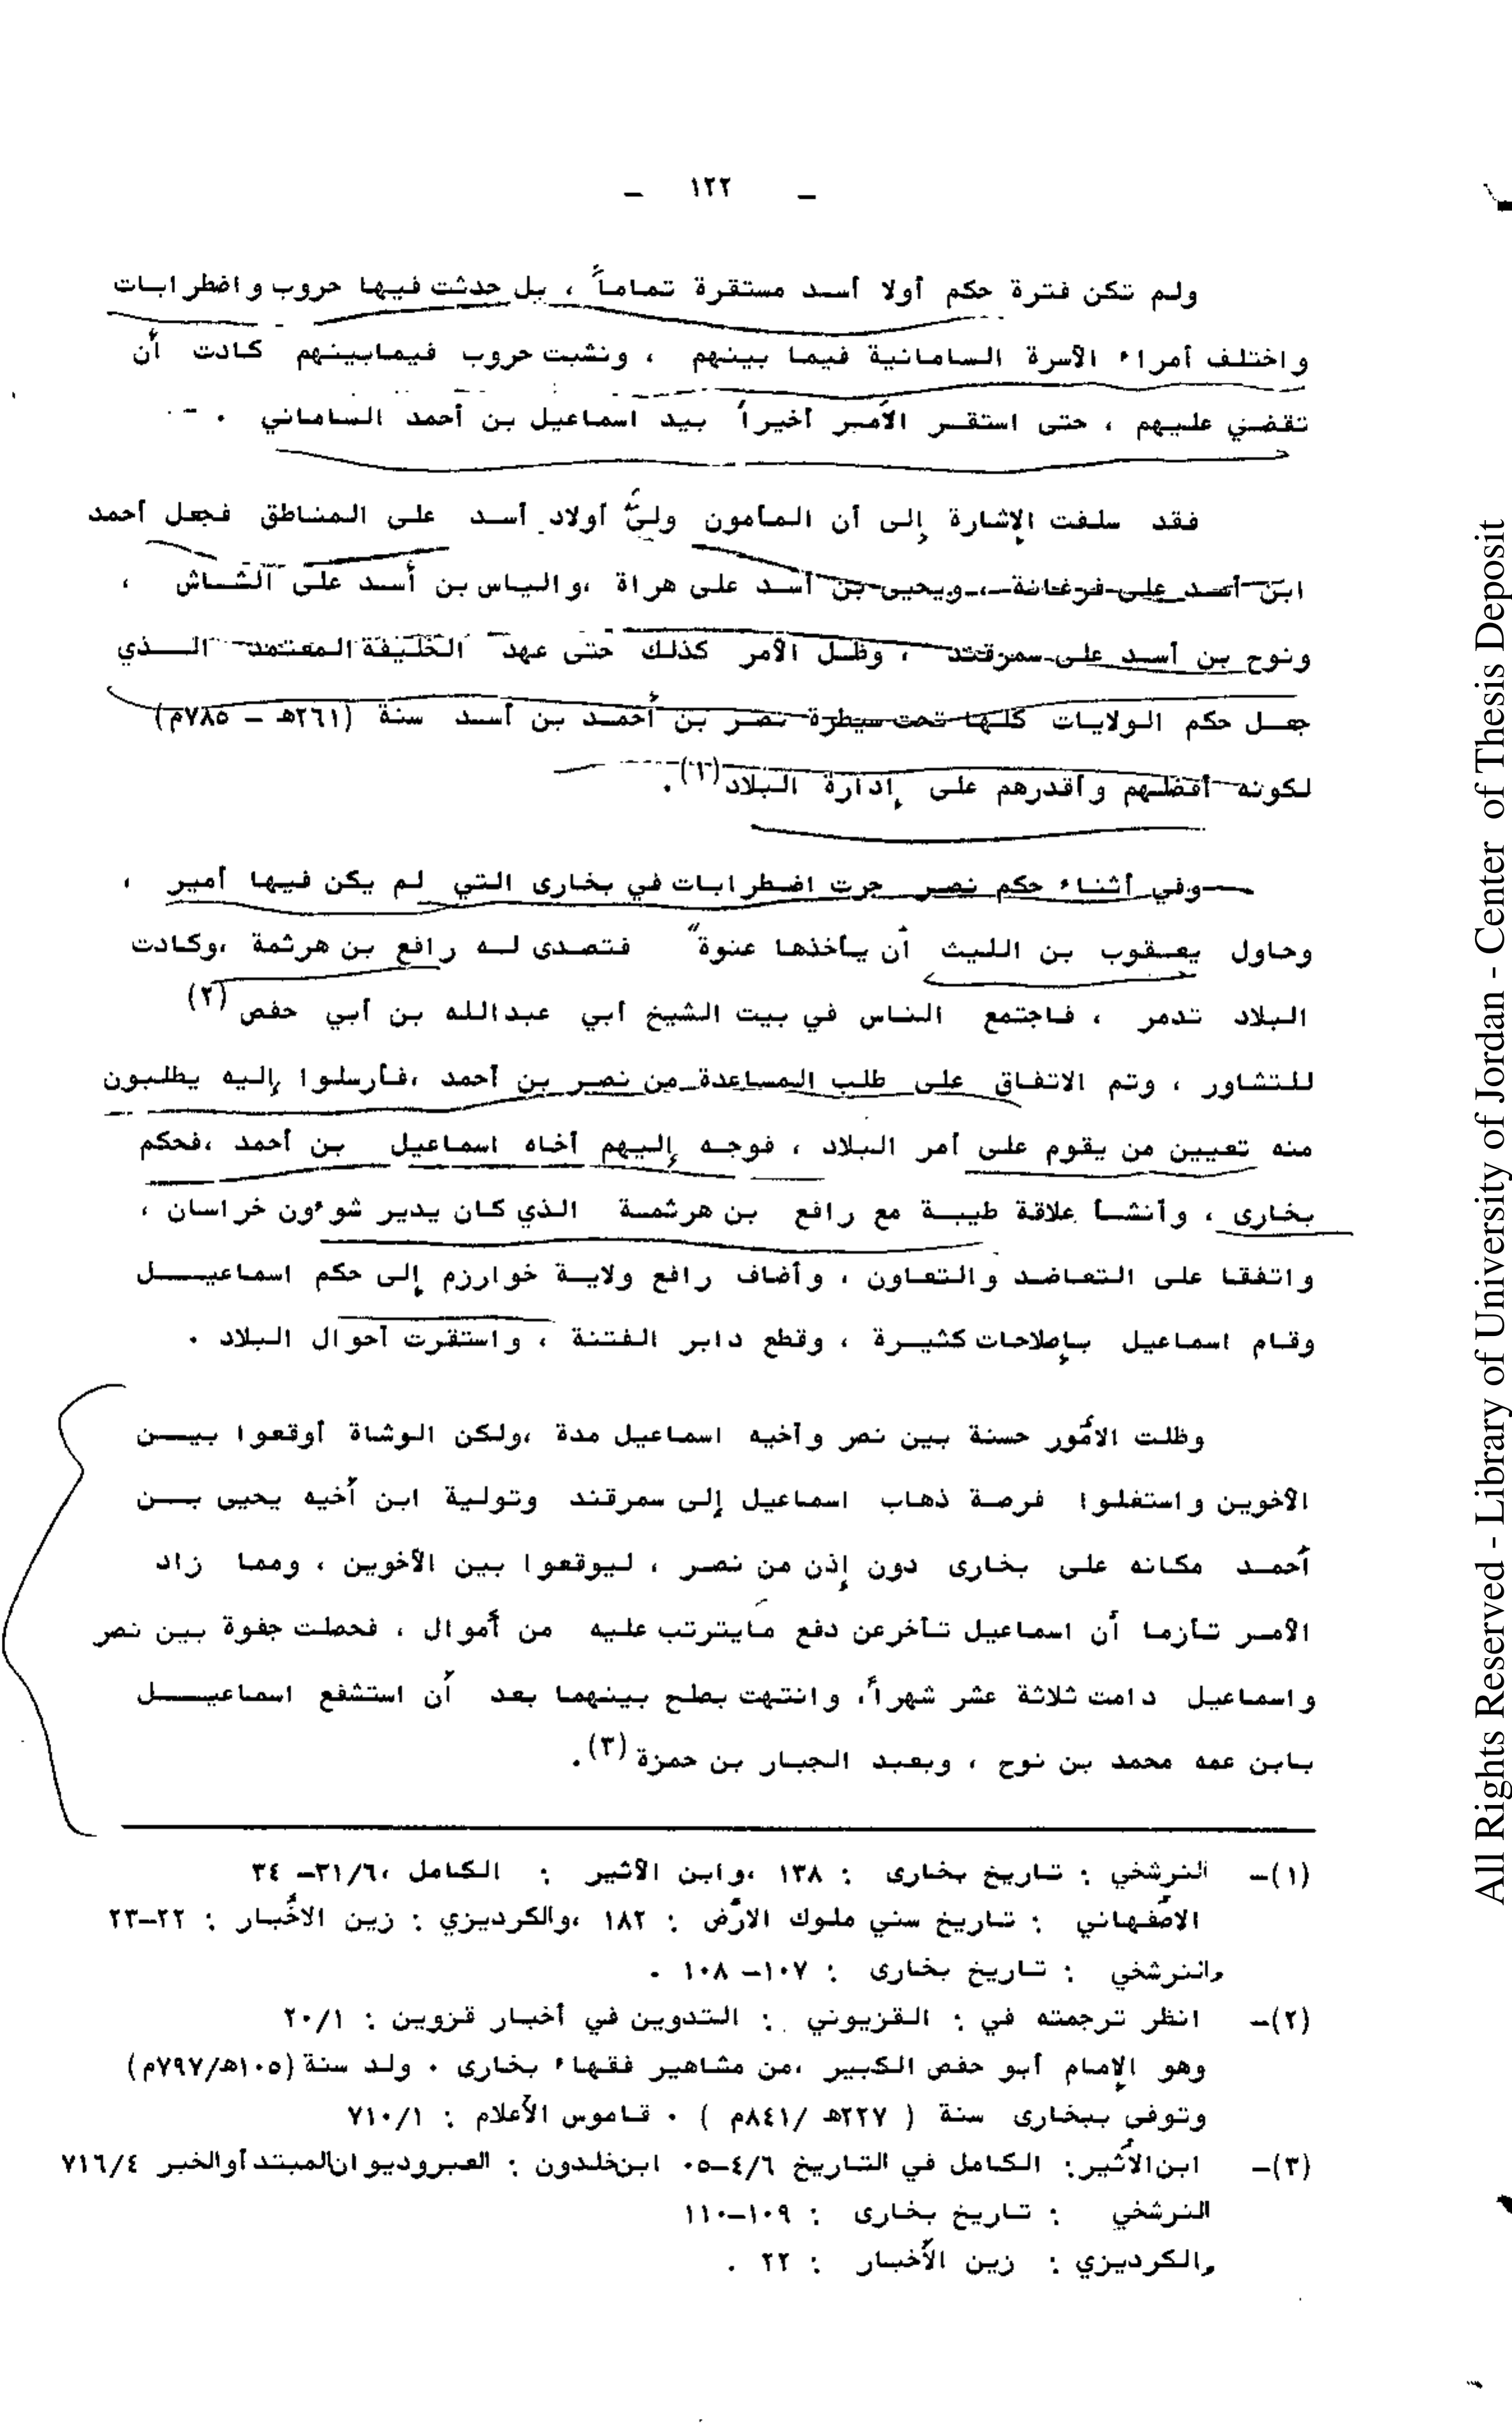 - ١٢٢ -
ولم تكن فترة حكم أولا أسد مستقرة تماماً ، بل حدثت فيها حروب واضطرابات
واختلف أمراء الأسرة السامانية فيما بينهم ، ونشبت حروب فيمابينهم كادت أن
تقضي عليهم ، حتى استقر الأمر أخيراً بيد اسماعيل بن أحمد الساماني .
فقد سلفت الإشارة إلى أن المأمون ولّى أولاد أسد على المناطق فجعل أحمد
ابن أسد على فرغانة ، ويحيى بن أسد على هراة ،والياس بن أسد على الشاش ،
ونوح بن أسد على سمرقند ، وظل الأمر كذلك حتى عهد الخليفة المعتمد الذي
جعل حكم الولايات كلها تحت سيطرة نصر بن أحمد بن أسد سنة (٢٦١هـ - ٧٨٥م)
لكونه أفضلهم وأقدرهم على إدارة البلاد(١).
وفي أثناء حكم نصر جرت اضطرابات في بخارى التي لم يكن فيها أمير ،
وحاول يعقوب بن الليث أن يأخذها عنوة فتصدى له رافع بن هرثمة ،وكادت
البلاد تدمر ، فاجتمع الناس في بيت الشيخ أبي عبدالله بن أبي حفص (٢)
للتشاور ، وتم الاتفاق على طلب المساعدة من نصر بن أحمد ،فأرسلوا إليه يطلبون
منه تعيين من يقوم على أمر البلاد ، فوجه إليهم أخاه اسماعيل بن أحمد ،فحكم
بخارى ، وأنشأ علاقة طيبة مع رافع بن هرثمة الذي كان يدير شوءون خراسان ،
واتفقا على التعاضد والتعاون ، وأضاف رافع ولاية خوارزم إلى حكم اسماعيل
وقام اسماعيل بإصلاحات كثيرة ، وقطع دابر الفتنة ، واستقرت أحوال البلاد .
وظلت الأمور حسنة بين نصر وأخيه اسماعيل مدة ،ولكن الوشاة أوقعوا بين
الأخوين واستغلوا فرصة ذهاب اسماعيل إلى سمرقند وتولية ابن أخيه يحيى بن
أحمد مكانه على بخارى دون إذن من نصر ، ليوقعوا بين الأخوين ، ومما زاد
الأمر تأزما أن اسماعيل تأخرعن دفع مايترتب عليه من أموال ، فحصلت جفوة بين نصر
واسماعيل دامت ثلاثة عشر شهراً، وانتهت بصلح بينهما بعد أن استشفع اسماعيل
بابن عمه محمد بن نوح ، وبعبد الجبار بن حمزة (٣).
(١)- النرشخي : تاريخ بخارى : ١٣٨ ،وابن الأثير : الكامل ،٣١/٦- ٣٤
الاصفهاني : تاريخ سني ملوك الأرض : ١٨٢ ،والكرديزي : زين الأخبار : ٢٢-٢٣
والنرشخي : تاريخ بخارى : ١٠٧- ١٠٨ .
(٢)- انظر ترجمته في : القزيوني : التدوين في أخبار قزوين : ٢٠/١
وهو الإمام أبو حفص الكبير ،من مشاهير فقهاء بخارى . ولد سنة (١٠٥هـ/٧٩٧م)
وتوفى ببخارى سنة ( ٢٢٧هـ /٨٤١م ) . قاموس الأعلام : ٧١٠/١
(٣)- ابن الأثير: الكامل في التاريخ ٤/٦-٠٥ ابن خلدون : العبروديوان المبتدأوالخبر ٧١٦/٤
النرشخي : تاريخ بخارى : ١٠٩-١١٠
والكرديزي : زين الأخبار : ٢٢ .
All Rights Reserved - Library of University of Jordan - Center of Thesis Deposit